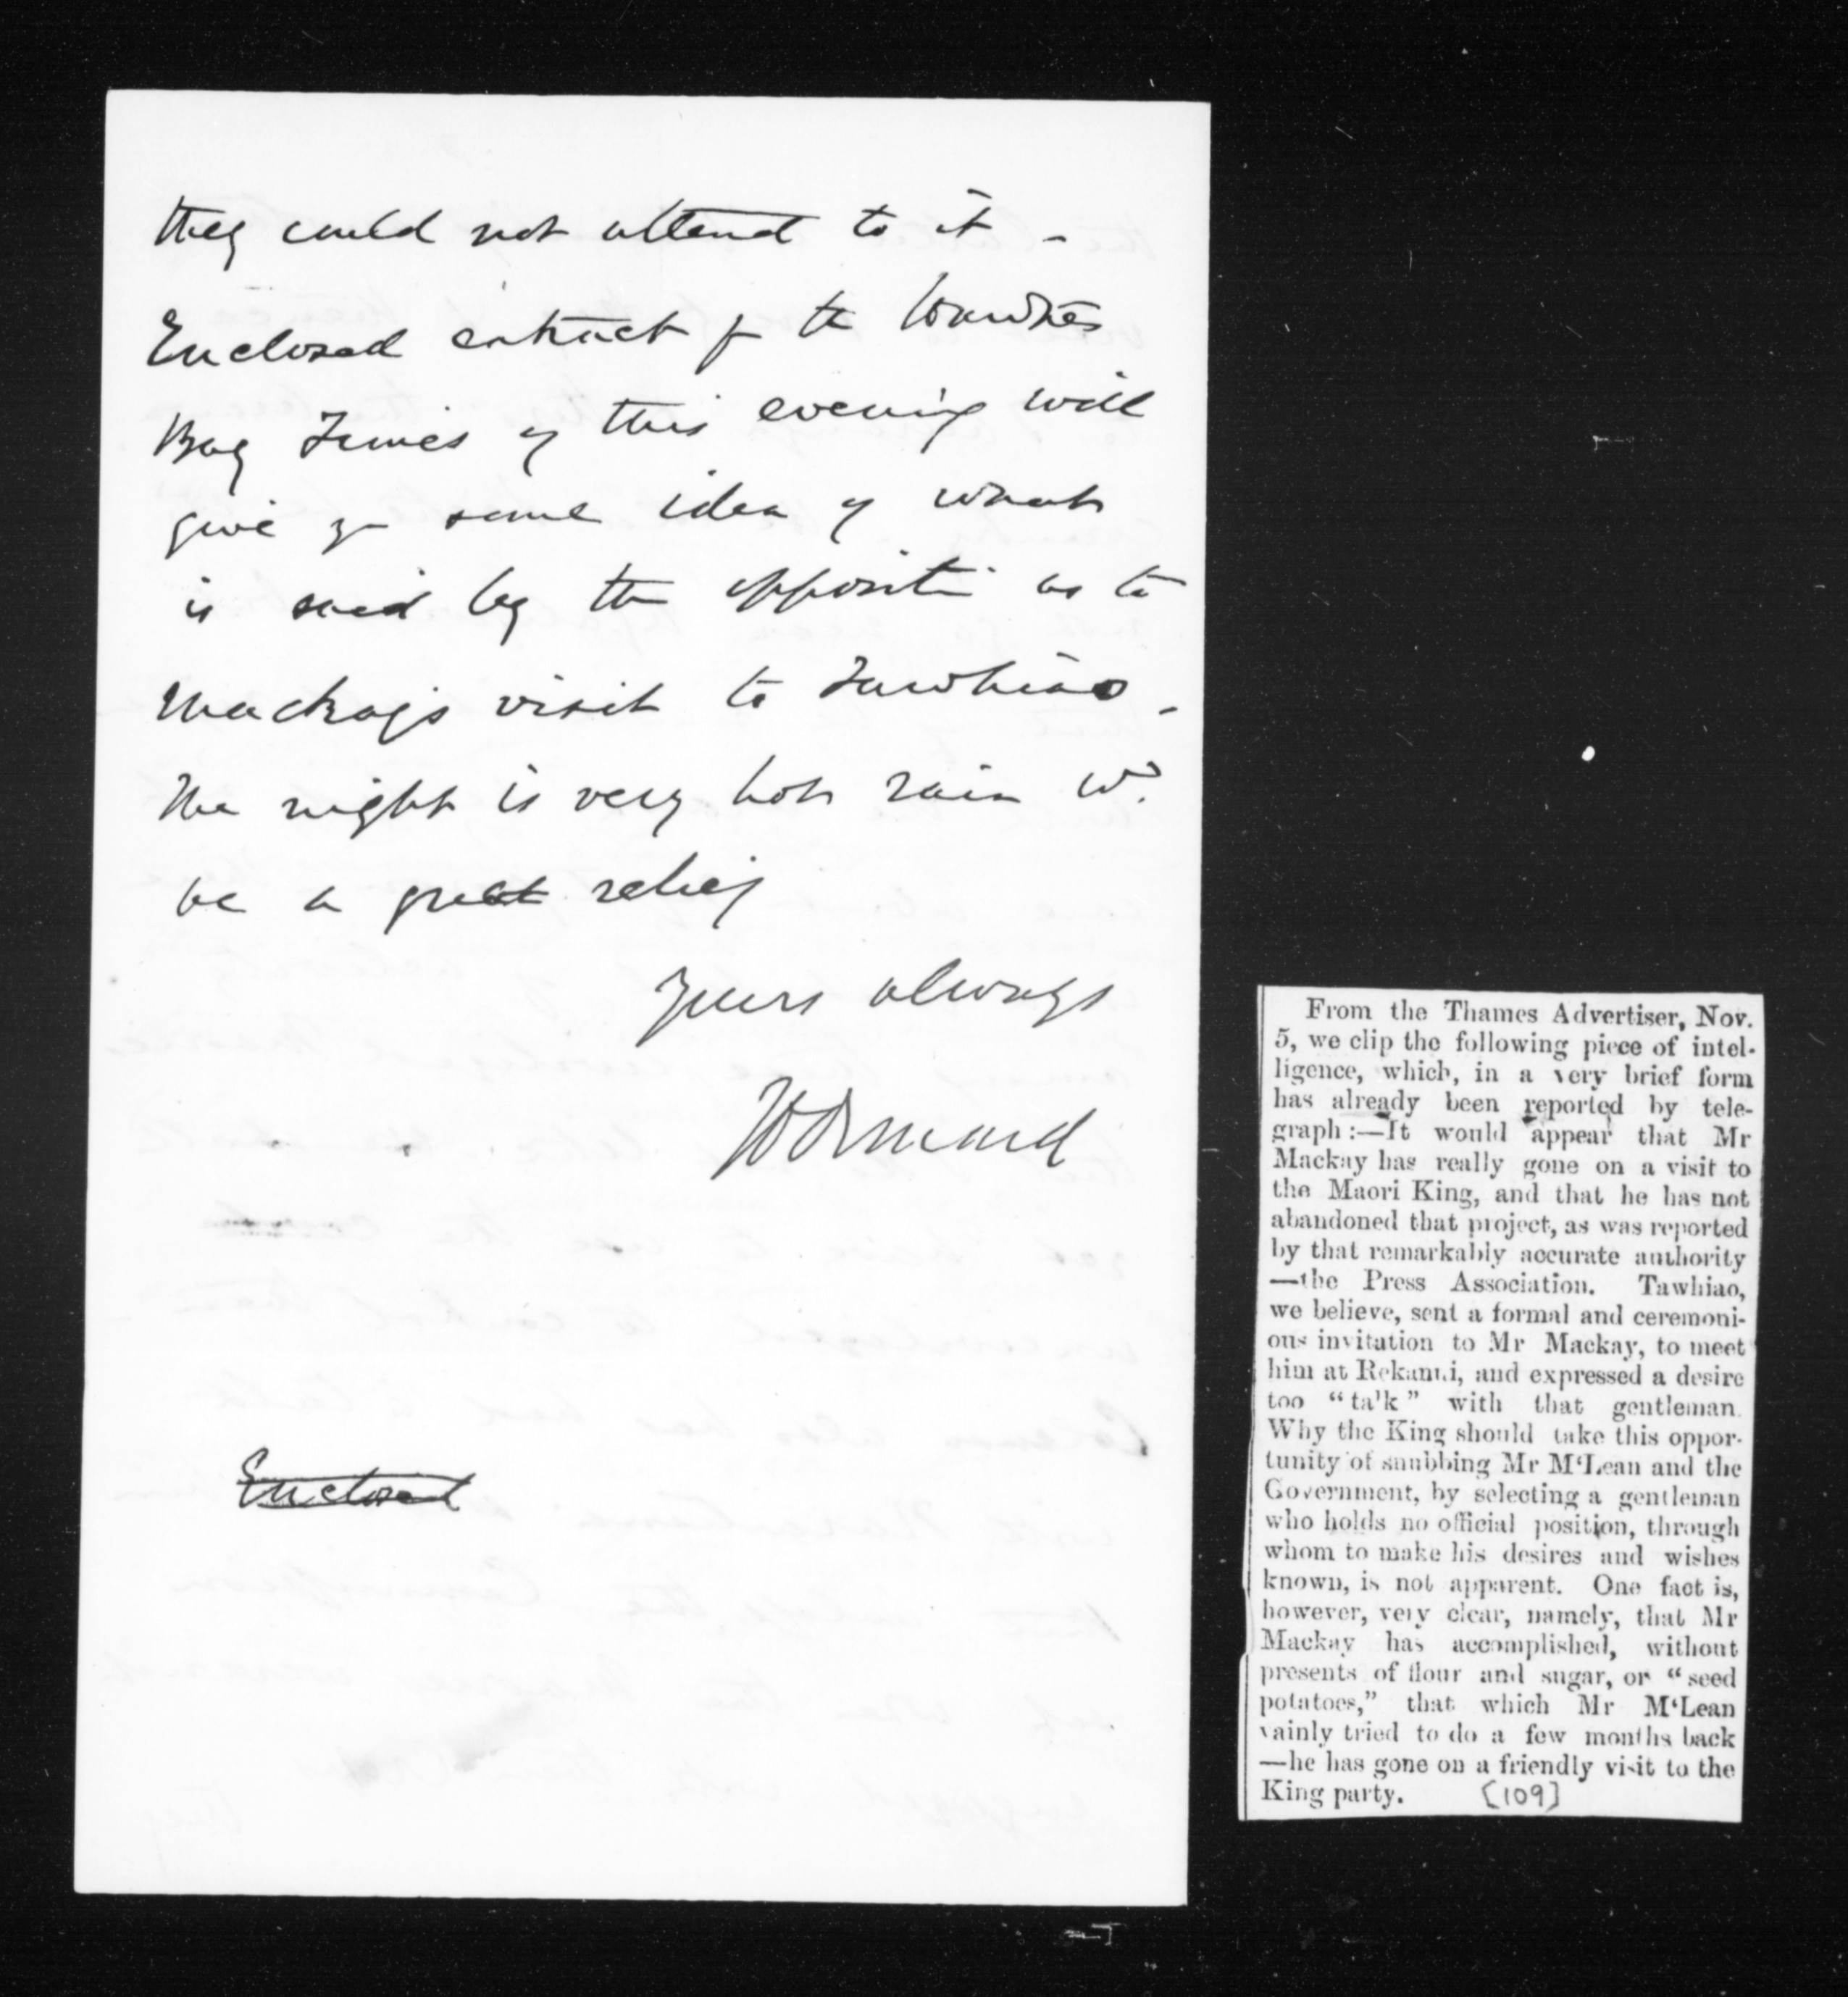 they could not attend to it -
Enclosed extract fr the Hawkes
Bay Times of this evening will
give yr some idea of what
is said by the oppositi as to
Mackay's visit to Tawhiao -
The night is very hot rain wd.
be a great relief
Yours always
JDOrmond
Enclosed
From the Thames Advertiser, Nov.
5, we clip the following piece of intel-
ligence, which, in a very brief form
has already been reported by tele-
graph :—It would appear that Mr
Mackay has really gone on a visit to
the Maori King, and that he has not
abandoned that project, as was reported
by that remarkably accurate authority
—the Press Association. Tawhiao,
we believe, sent a formal and ceremoni-
ous invitation to Mr Mackay, to meet
him at Rekanui, and expressed a desire
too “talk” with that gentleman.
Why the King should take this oppor-
tunity of snubbing Mr M‘Lean and the
Government, by selecting a gentleman
who holds no official position, through
whom to make his desires and wishes
known, is not apparent. One fact is,
however, very clear, namely, that Mr
Mackay has accomplished, without
presents of flour and sugar, or “seed
potatoes,” that which Mr M‘Lean
vainly tried to do a few months back
—he has gone on a friendly visit to the
King party. [109]